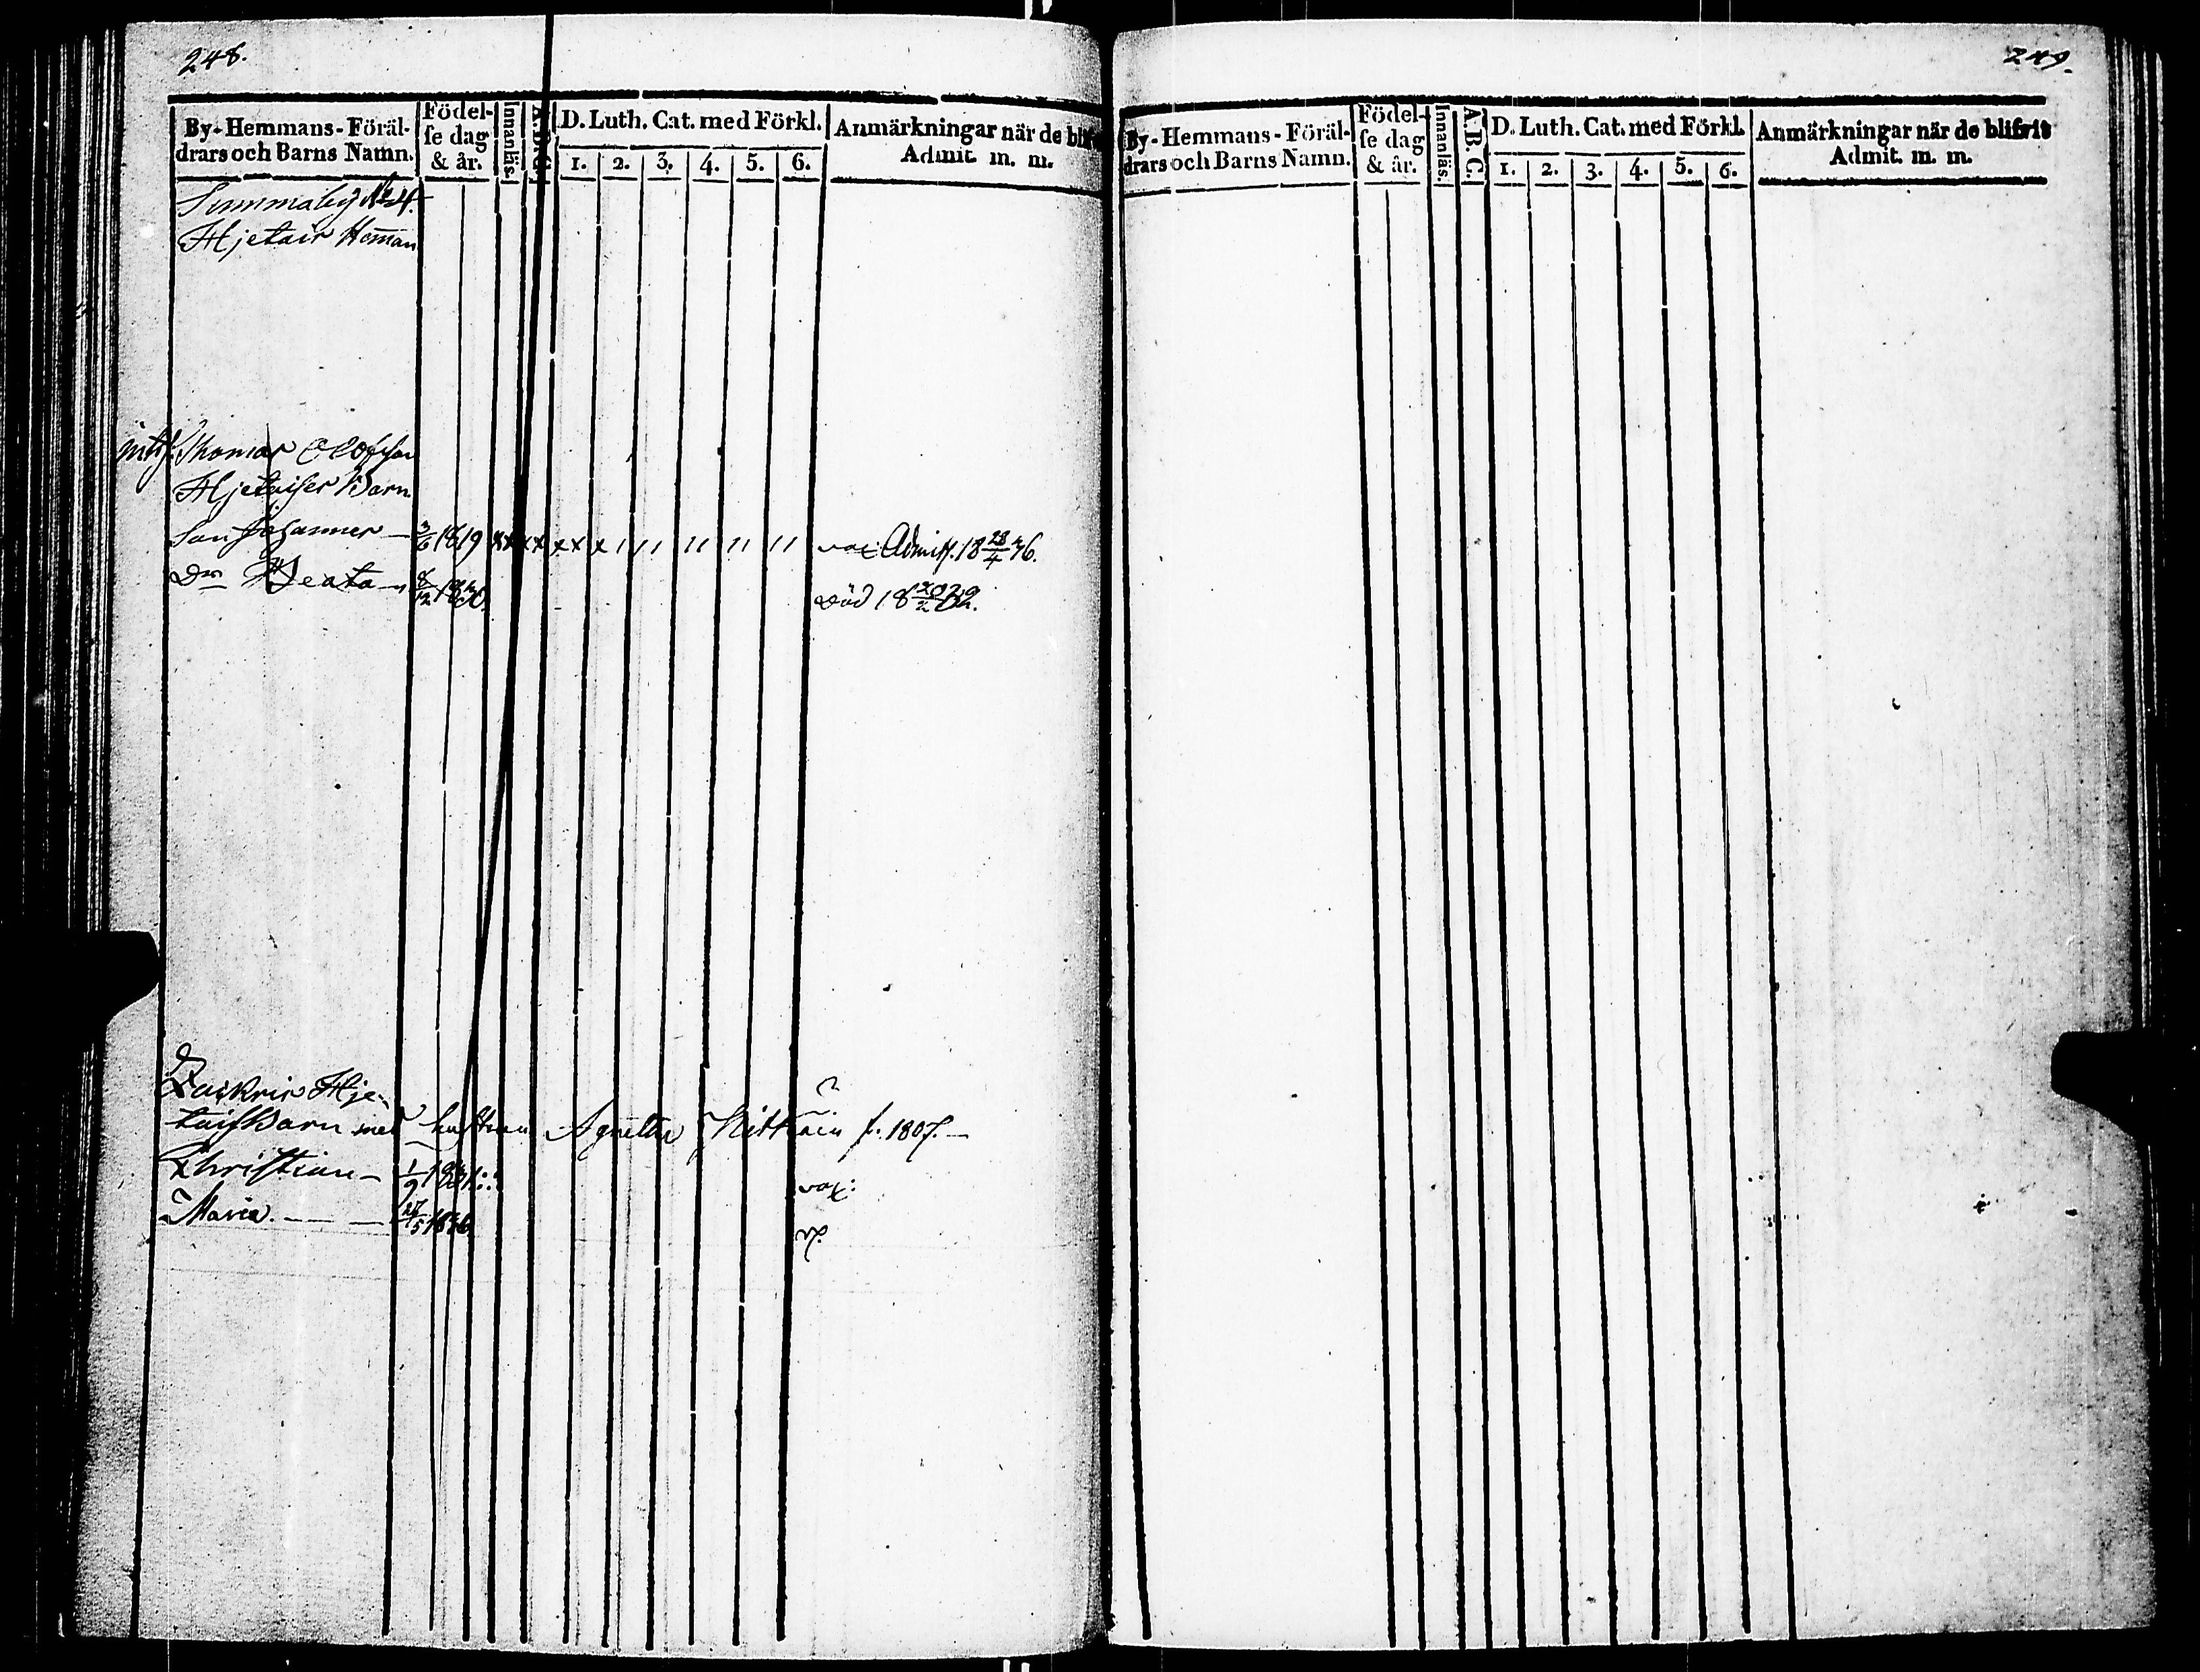 248.
By-Hemmans-Föräl-
drars och Barns Namn.
Födel-
se dag
& år.
Innanläs.
A.B.C.
D. Luth. Cat. med Förkl.
1. 2. 3. 4. 5. 6.
Anmärkningar när de blifvit
Admit. m. m.
Hjetair Heman
Thomas Olofson
Hjetaiser Barn
Son Johannes — 3/6 1819 xx xx xx x 1 11 11 11 11 vax: Admitt. 18 28/4 36.
Dr. Beata 8/12 1830. Död 18 20/2 32.
Zackris Hje-
tais Barn med hustrun Agneta f. 1807.—
Christian — 1/9 1831. vax:
Maria. — — 27/5 1836 v.
249.
By-Hemmans-Föräl-
drars och Barns Namn.
Födel-
se dag
& år.
Innanläs.
A.B.C.
D. Luth. Cat. med Förkl.
1. 2. 3. 4. 5. 6.
Anmärkningar när de blifvit
Admit. m. m.